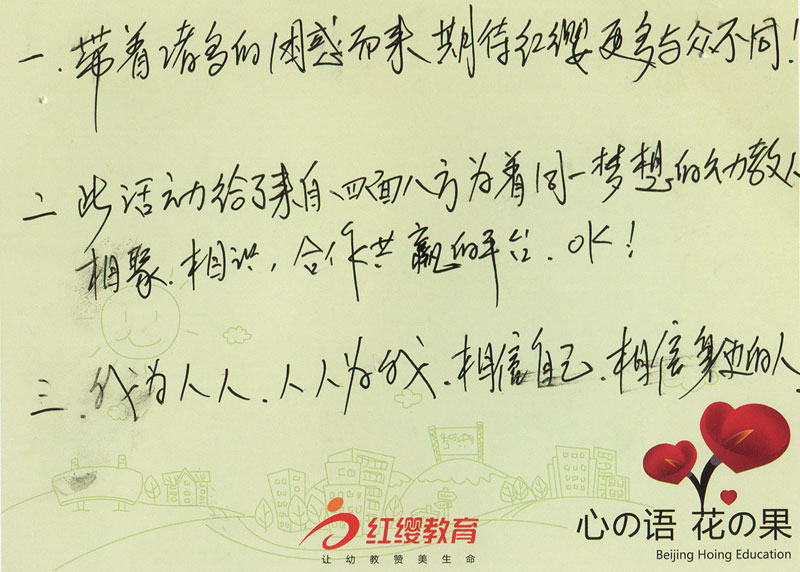 一.带着诸多的困惑而来 期待红缨更多与众不同!
二 此活动给了来自四面八方为着同一梦想的幼教人
相聚.相识,合作共赢的平台.OK!
三.我为人人.人人为我.相信自己.相信身边的人
红缨教育
让幼教赞美生命
心の语 花の果
Beijing Hoing Education